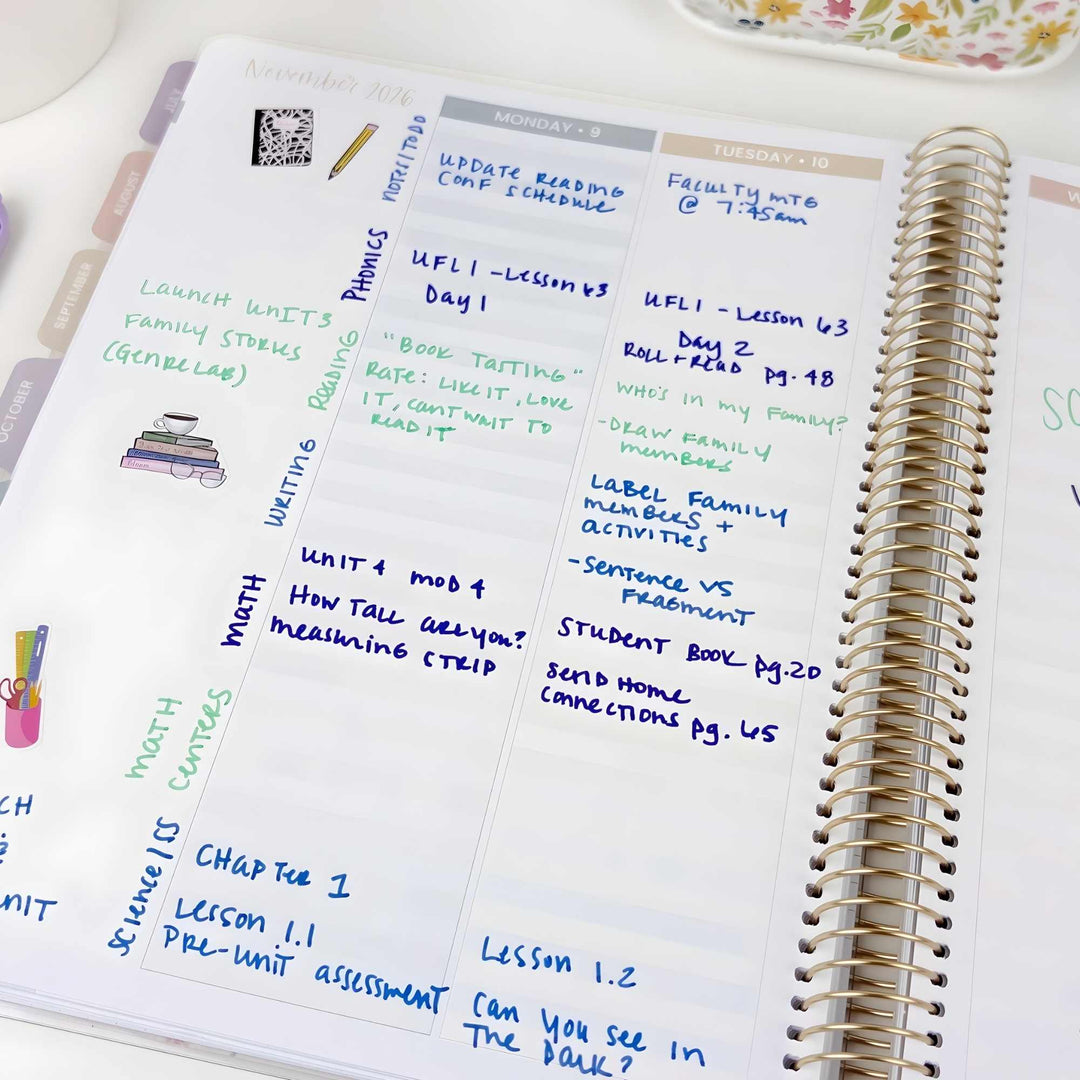 November 2026
JULY
AUGUST
SEPTEMBER
OCTOBER
MONDAY • 9
TUESDAY • 10
W
NOTES/TODO
UPDATE READING
CONF SCHEDULE
FACULTY MTG
@ 7:45am
PHONICS
UFLI - Lesson 63
Day 1
UFLI - Lesson 63
Day 2
ROLL + READ pg. 48
LAUNCH UNIT 3
FAMILY STORIES
(GENRE LAB)
READING
"BOOK TASTING"
RATE: LIKE IT, LOVE
IT, CANT WAIT TO
READ IT
WHO'S IN MY FAMILY?
-DRAW FAMILY
MEMBERS
WRITING
LABEL FAMILY
MEMBERS +
ACTIVITIES
-SENTENCE VS
FRAGMENT
MATH
UNIT 4 MOD 4
HOW TALL ARE YOU?
MEASURING STRIP
STUDENT BOOK pg. 20
SEND HOME
CONNECTIONS pg. 65
MATH
CENTERS
SCIENCE/SS
CHAPTER 1
Lesson 1.1
PRE-UNIT ASSESSMENT
Lesson 1.2
CAN YOU SEE IN
THE DARK?